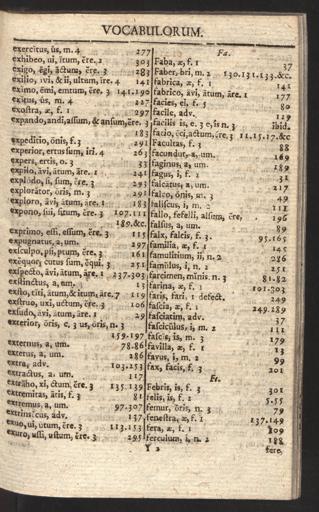 VOCABULORUM.
exercitus, ûs, m. 4 277
exhibeo, ui, itum, ēre. 2 303
exigo, ēgi, āctum, ĕre. 3 283
exilio, ivi, & ii, ultum, ire. 4 141
eximo, ēmi, emtum, ĕre. 3 141.190
exitus, ûs, m. 4 227
exostra, æ, f. 1 297
expando, andi, assum, & ansum, ĕre. 3
183
expeditio, ōnis, f. 3 291
experior, ertus sum, iri. 4 263
expers, ertis, o. 3 33
expio, āvi, ātum, āre. 1 241
explōdo, si, sum, ĕre. 3 293
explorātor, ōris, m. 3 291
exploro, āvi, ātum, āre. 1 183
expono, sui, situm, ĕre. 3 107.111
189.&c.
exprimo, essi, essum, ĕre. 3 115
expugnatus, a, um. 297
exsculpo, psi, ptum, ĕre. 3 161
exequor, cutus sum, ĕqui. 3 251
exspecto, āvi, ātum, āre. 1 237.303
exstinctus, a, um. 13
exsto, stiti, ātum, & itum, āre. 7 119
exstruo, uxi, uctum, ĕre. 3 106
exsudo, āvi, ātum, āre. 1 29
exterior, ōris, c. 3 us, ōris, n. 3
159.197
externus, a, um. 78.86
exterus, a, um. 286
extra, adv. 103.253
extractus, a, um. 117
extrăho, xi, ctum, ĕre. 3 135.139
extremitas, ātis, f. 3 81
extremus, a, um. 97.307
extrinsecus, adv. 137
exuo, ui, utum, ĕre. 3 113.153
exuro, ussi, ustum, ĕre. 3 295
Fa.
Faba, æ, f. 1 37
Faber, bri, m. 2 130.131.133.&c.
fabrica, æ, f. 1 141
fabrico, āvi, ātum, āre. 1 177
facies, ei, f. 5 80
facile, adv. 129
facilis is, e. 3 e, is n. 3 ibid.
facio, ēci, actum, ĕre. 3 11.15.17.&c
Facultas, f. 3 88
facundus, a, um. 169
faginus, a, um. 189
fagus, i, f. 1 31
falcatus, a, um. 217
falco, ōnis, m. 3 49
faliscus, i, m. 2 112
fallo, fefelli, alsum, ĕre, 196
falsus, a, um. 89
falx, falcis, f. 3 95.165
familia, æ, f. 1 145
famulitium, ii, n. 2 286
famŭlus, i, n. 2 251
farcimen, minis n. 3 81.82
farina, æ, f. 1 101.203
faris, fari, 1 defect. 249
fascia, æ, f. 1 249.289
fasciatim, adv. 37
fascicŭlus, i, m. 2 111
fascis, is, m. 3 179
favilla, æ, f. 1 13
favus, i, m. 2 99
fax, facis, f. 3 201
Fe.
Febris, is, f. 3 301
felis, is, f. 2 5.55
femur, ŏris, n. 3 79
fenestra, æ, f. 1 137.149
fera, æ, f. 1 209
ferculum, i, n. 2 188
Y 2 fere,